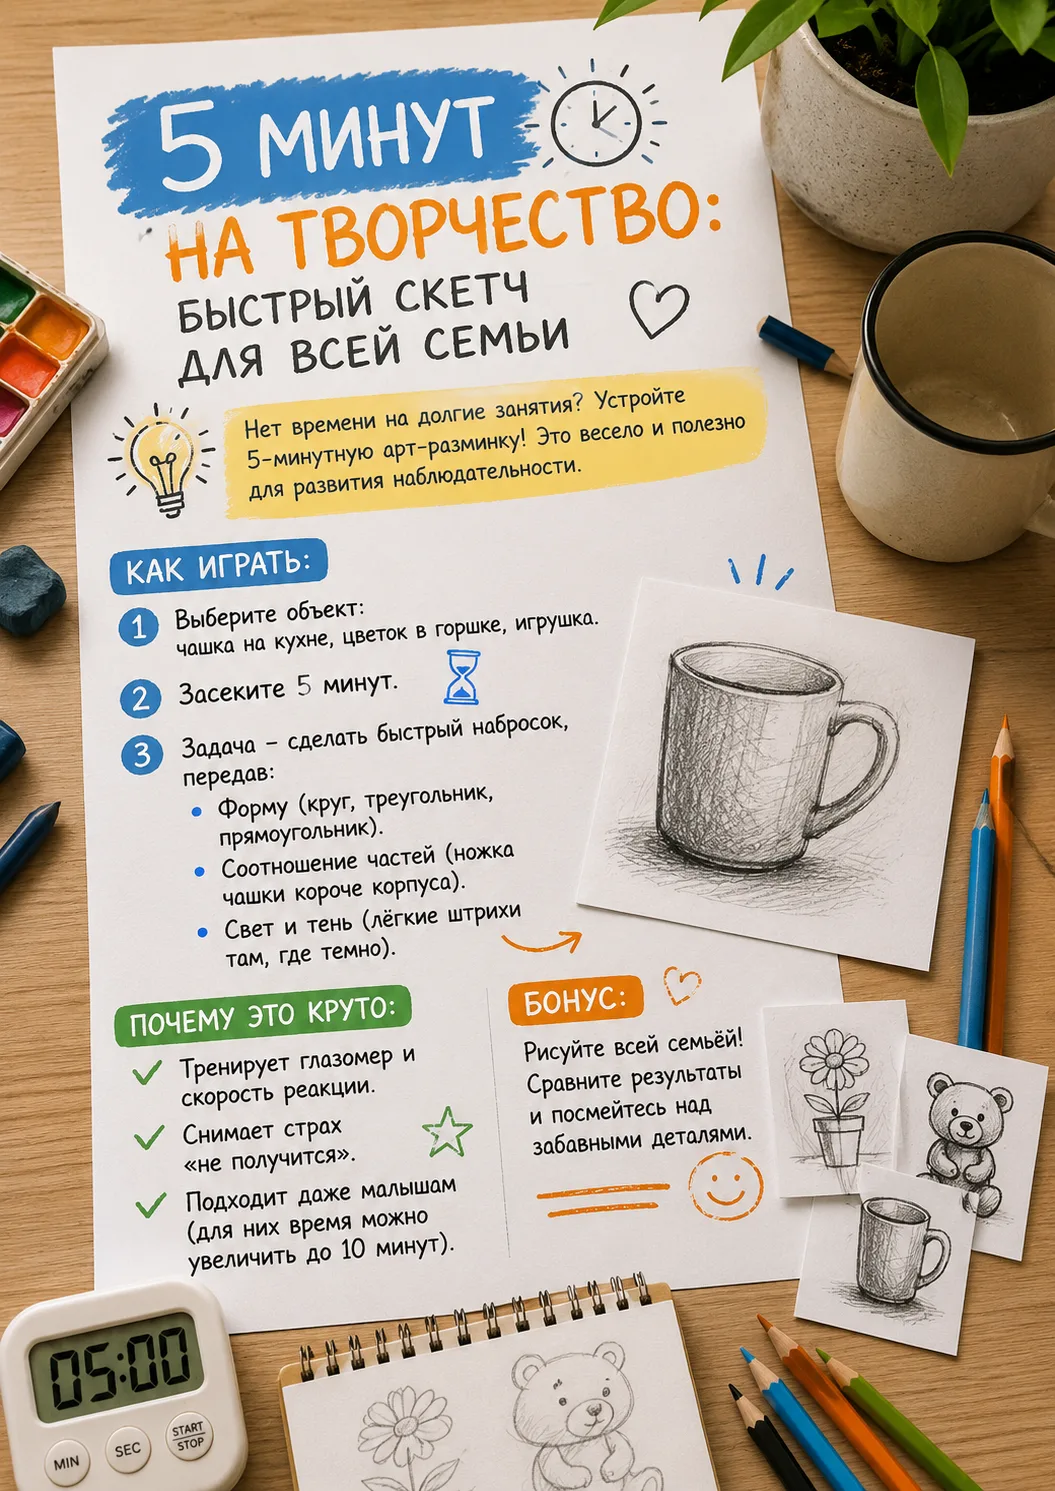 5 МИНУТ
НА ТВОРЧЕСТВО:
БЫСТРЫЙ СКЕТЧ
ДЛЯ ВСЕЙ СЕМЬИ
Нет времени на долгие занятия? Устройте
5-минутную арт-разминку! Это весело и полезно
для развития наблюдательности.
КАК ИГРАТЬ:
1 Выберите объект:
чашка на кухне, цветок в горшке, игрушка.
2 Засеките 5 минут.
3 Задача – сделать быстрый набросок,
передав:
• Форму (круг, треугольник,
прямоугольник).
• Соотношение частей (ножка
чашки короче корпуса).
• Свет и тень (лёгкие штрихи
там, где темно).
ПОЧЕМУ ЭТО КРУТО:
Тренирует глазомер и
скорость реакции.
Снимает страх
«не получится».
Подходит даже малышам
(для них время можно
увеличить до 10 минут).
БОНУС:
Рисуйте всей семьёй!
Сравните результаты
и посмейтесь над
забавными деталями.
05:00
MIN
SEC
START
STOP